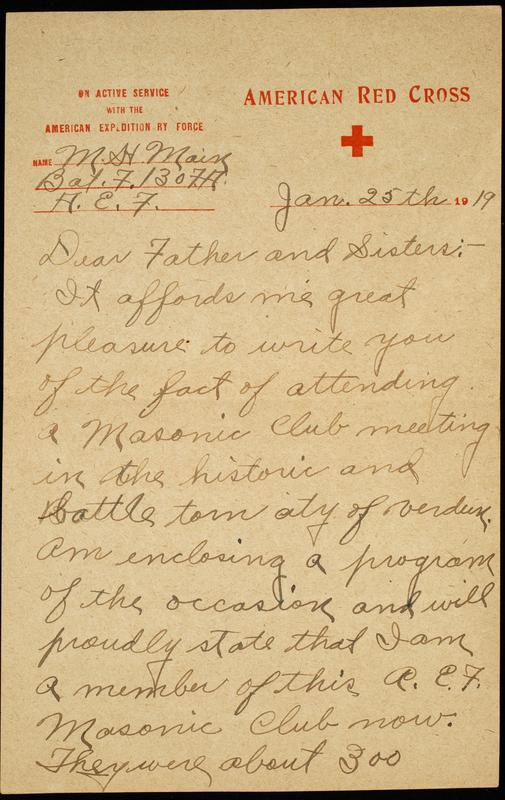 ON ACTIVE SERVICE
WITH THE
AMERICAN EXPEDITIONARY FORCE
AMERICAN RED CROSS
NAME M. H. Main
Bat. F. 130 F.A.
A. E. F.
Jan. 25th 1919
Dear Father and Sisters:—
It affords me great
pleasure to write you
of the fact of attending
a Masonic Club meeting
in the historic and
Battle torn city of Verdun.
Am enclosing a program
of the occasion and will
proudly state that I am
a member of this A. E. F.
Masonic Club now.
They were about 300